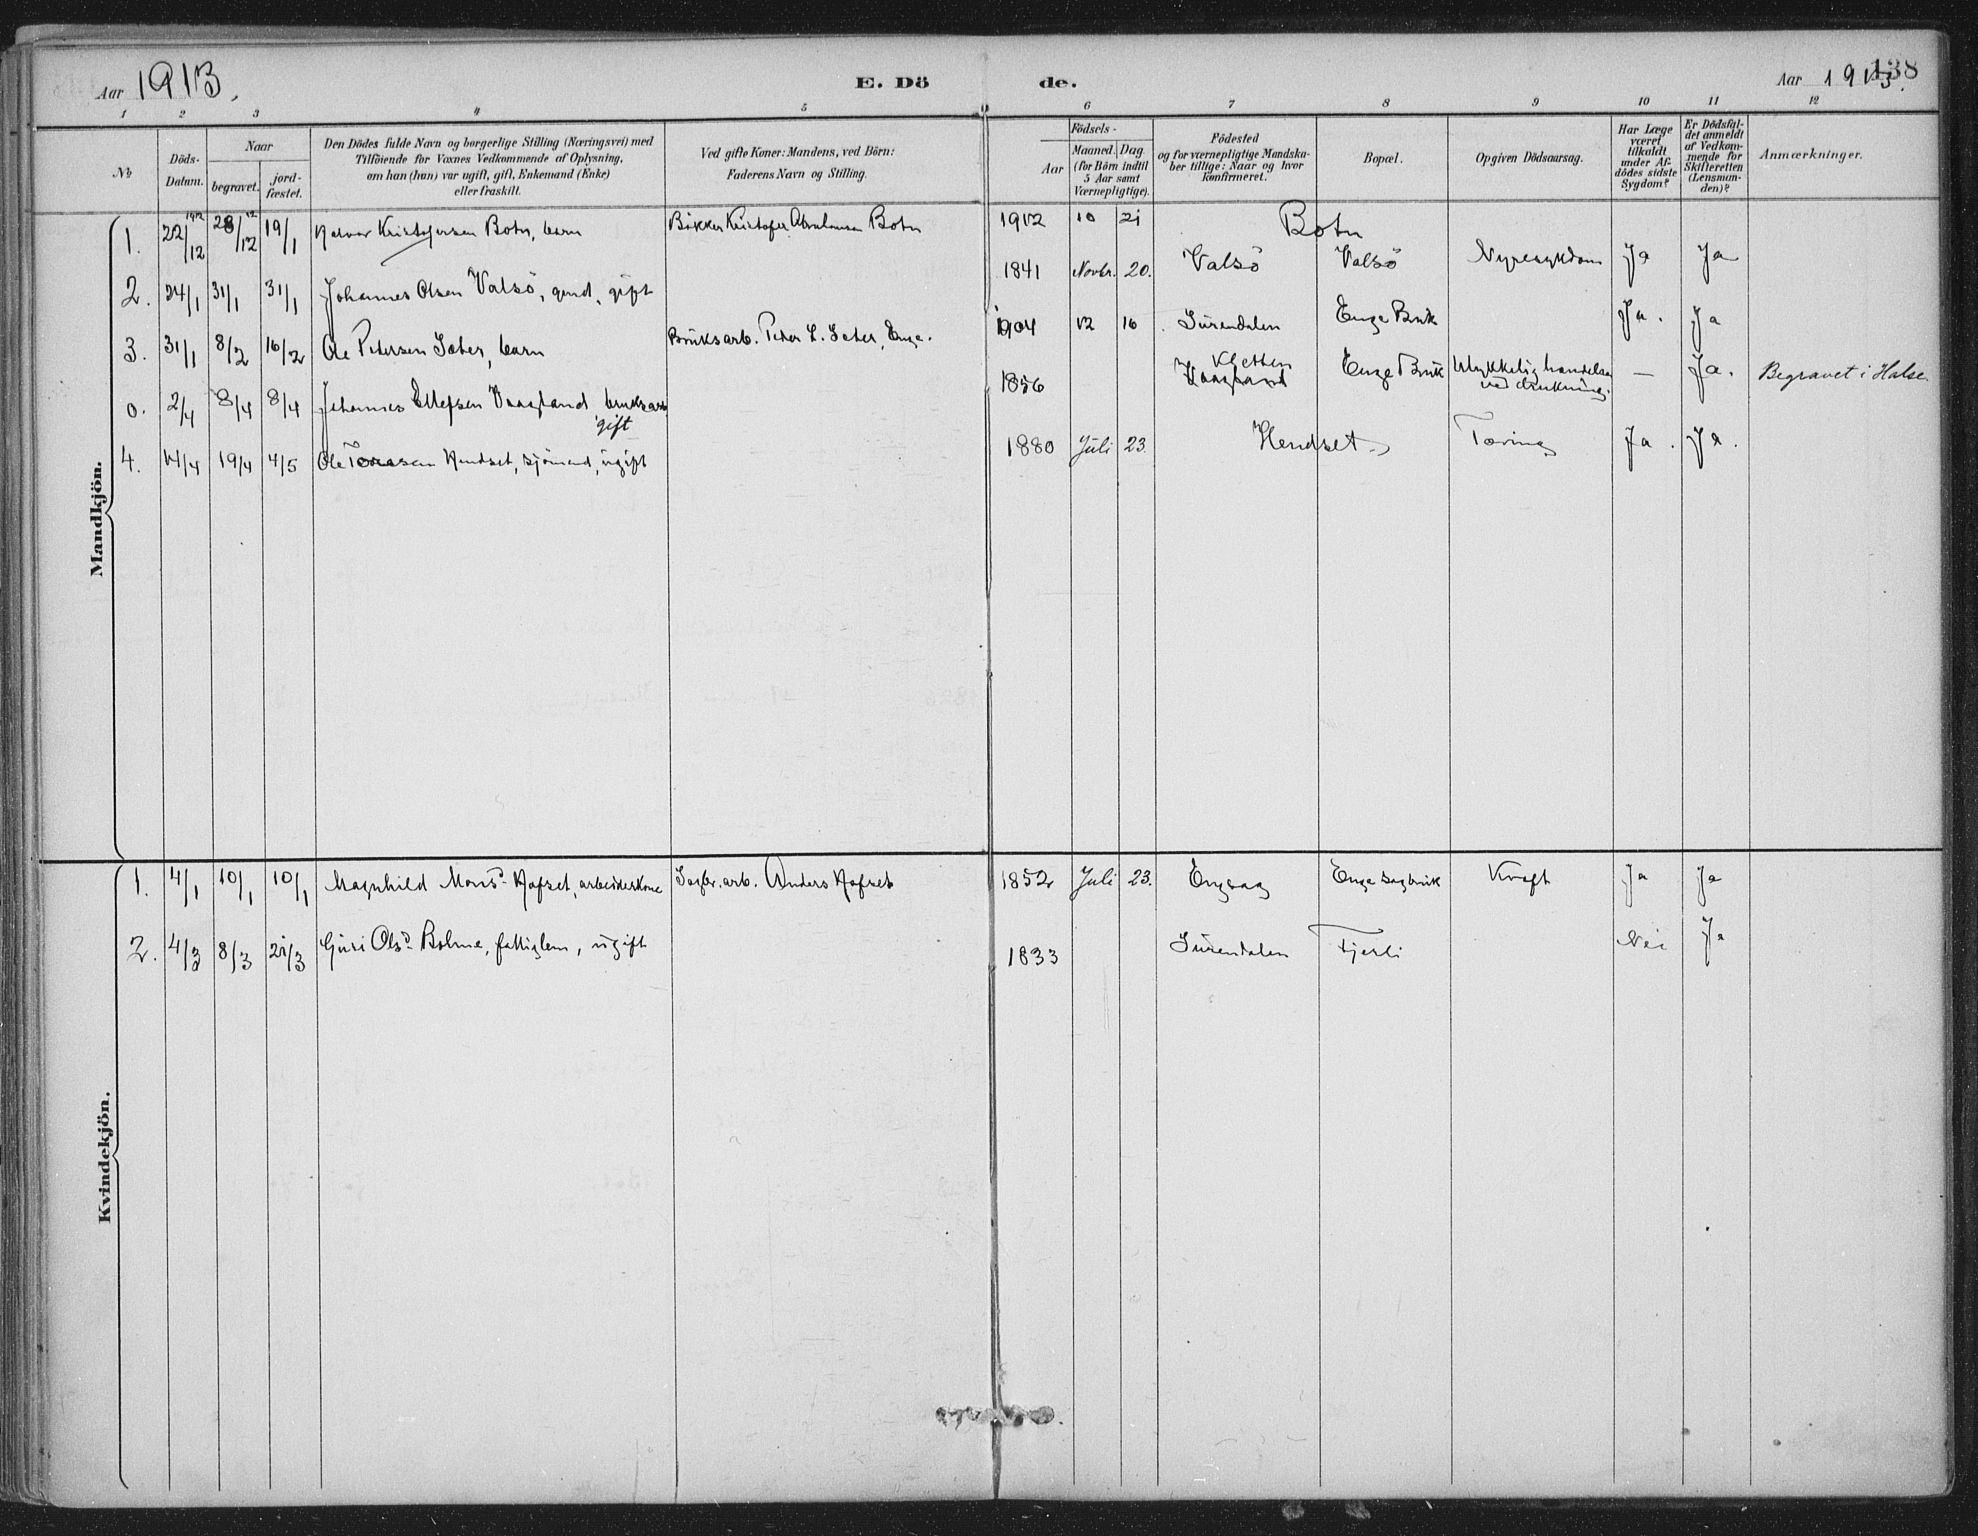 Aar 1913. E. Dö de. Aar 1913. 138
1 2 3 4 5 6 7 8 9 10 11 12
№ Döds-Datum. Naar begravet. jord-fæstet. Den Dödes fulde Navn og borgerlige Stilling (Næringsvei) med Tilföiende for Voxnes Vedkommende af Oplysning, om han (hun) var ugift, gift, Enkemand (Enke) eller fraskilt. Ved gifte Koner: Mandens, ved Börn: Faderens Navn og Stilling. Födsels- Aar Maaned. Dag. (for Börn indtil 5 Aar samt Værnepligtige). Födested og for værnepligtige Mandska-ber tillige: Naar og hvor konfirmeret. Bopæl. Opgiven Dödsaarsag. Har Læge været tilkaldt under Af-dödes sidste Sygdom? Er Dödsfal-det anmeldt af Vedkom-mende for Skifteretten (Lensman-den)? Anmærkninger.
Mandkjön.
1. 22/12 1912 28/12 12 19/1 Halvor Kristofersen Botn, barn Kristofer Abrahamsen Botn 1912 10 21 Botn
2. 24/1 31/1 31/1 Johannes Olsen Valsö, gmd, gift 1841 Novbr. 20. Valsö Valsö Nyresykdom Ja Ja
3. 31/1 8/2 16/2 Ole Petersen Sæter, barn Bruksarb. Peter L. Sæter, Enge. 1904 12 16 Surendalen Enge Bruk Ja. Ja
0. 2/4 8/4 8/4 Johannes Ellefsen Vaagland bruksarb gift 1856 Kletten Vaagland Enge Bruk Ulykkelig handelse ved drukning. — Ja. Begravet i Halse
4. 14/4 19/4 4/5 Ole Hendset, sjömand, ugift 1880 Juli 23. Hendset Tæring Ja. Ja.
Kvindekjön.
1. 4/1 10/1 10/1 Magnhild Monsd. Hafset, arbeiderkone Sagbr. arb. Anders Hafset 1852 Juli 23. Engsag Enge Sagbruk Kræft Ja Ja
2. 4/3 8/3 21/3 Guri Olsd. Bolme, fattiglem, ugift 1833 Surendalen Fjerli Nei Ja